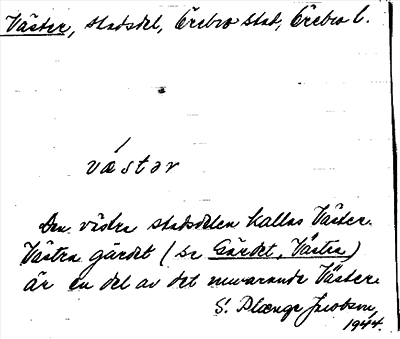 Väster, stadsdel, Örebro stad, Örebro l.
västər
Den västra stadsdelen kallas Väster.
Västra gärdet (se Gärdet, Västra)
är en del av det nuvarande Väster.
S. Plænge Jacobson,
1944.